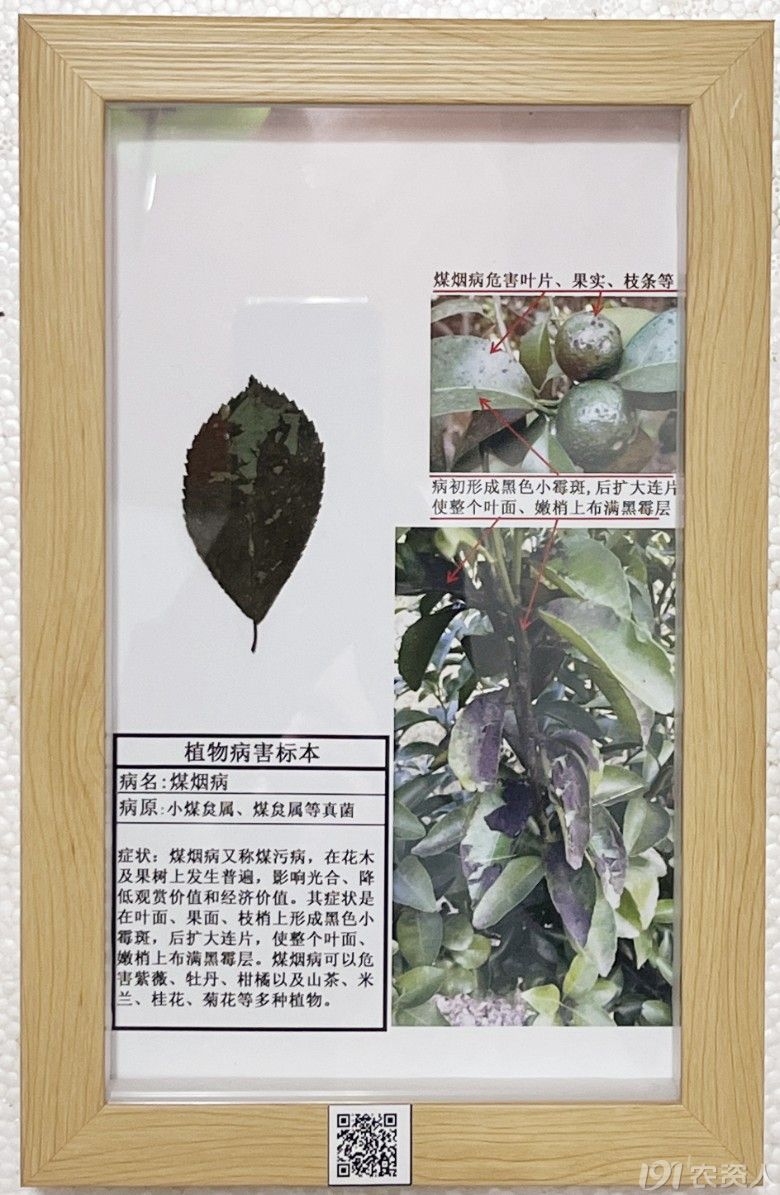 煤烟病危害叶片、果实、枝条等
病初形成黑色小霉斑,后扩大连片
使整个叶面、嫩梢上布满黑霉层
植物病害标本
病名:煤烟病
病原:小煤炱属、煤炱属等真菌
症状：煤烟病又称煤污病，在花木
及果树上发生普遍，影响光合、降
低观赏价值和经济价值。其症状是
在叶面、果面、枝梢上形成黑色小
霉斑，后扩大连片，使整个叶面、
嫩梢上布满黑霉层。煤烟病可以危
害紫薇、牡丹、柑橘以及山茶、米
兰、桂花、菊花等多种植物。
191农资人